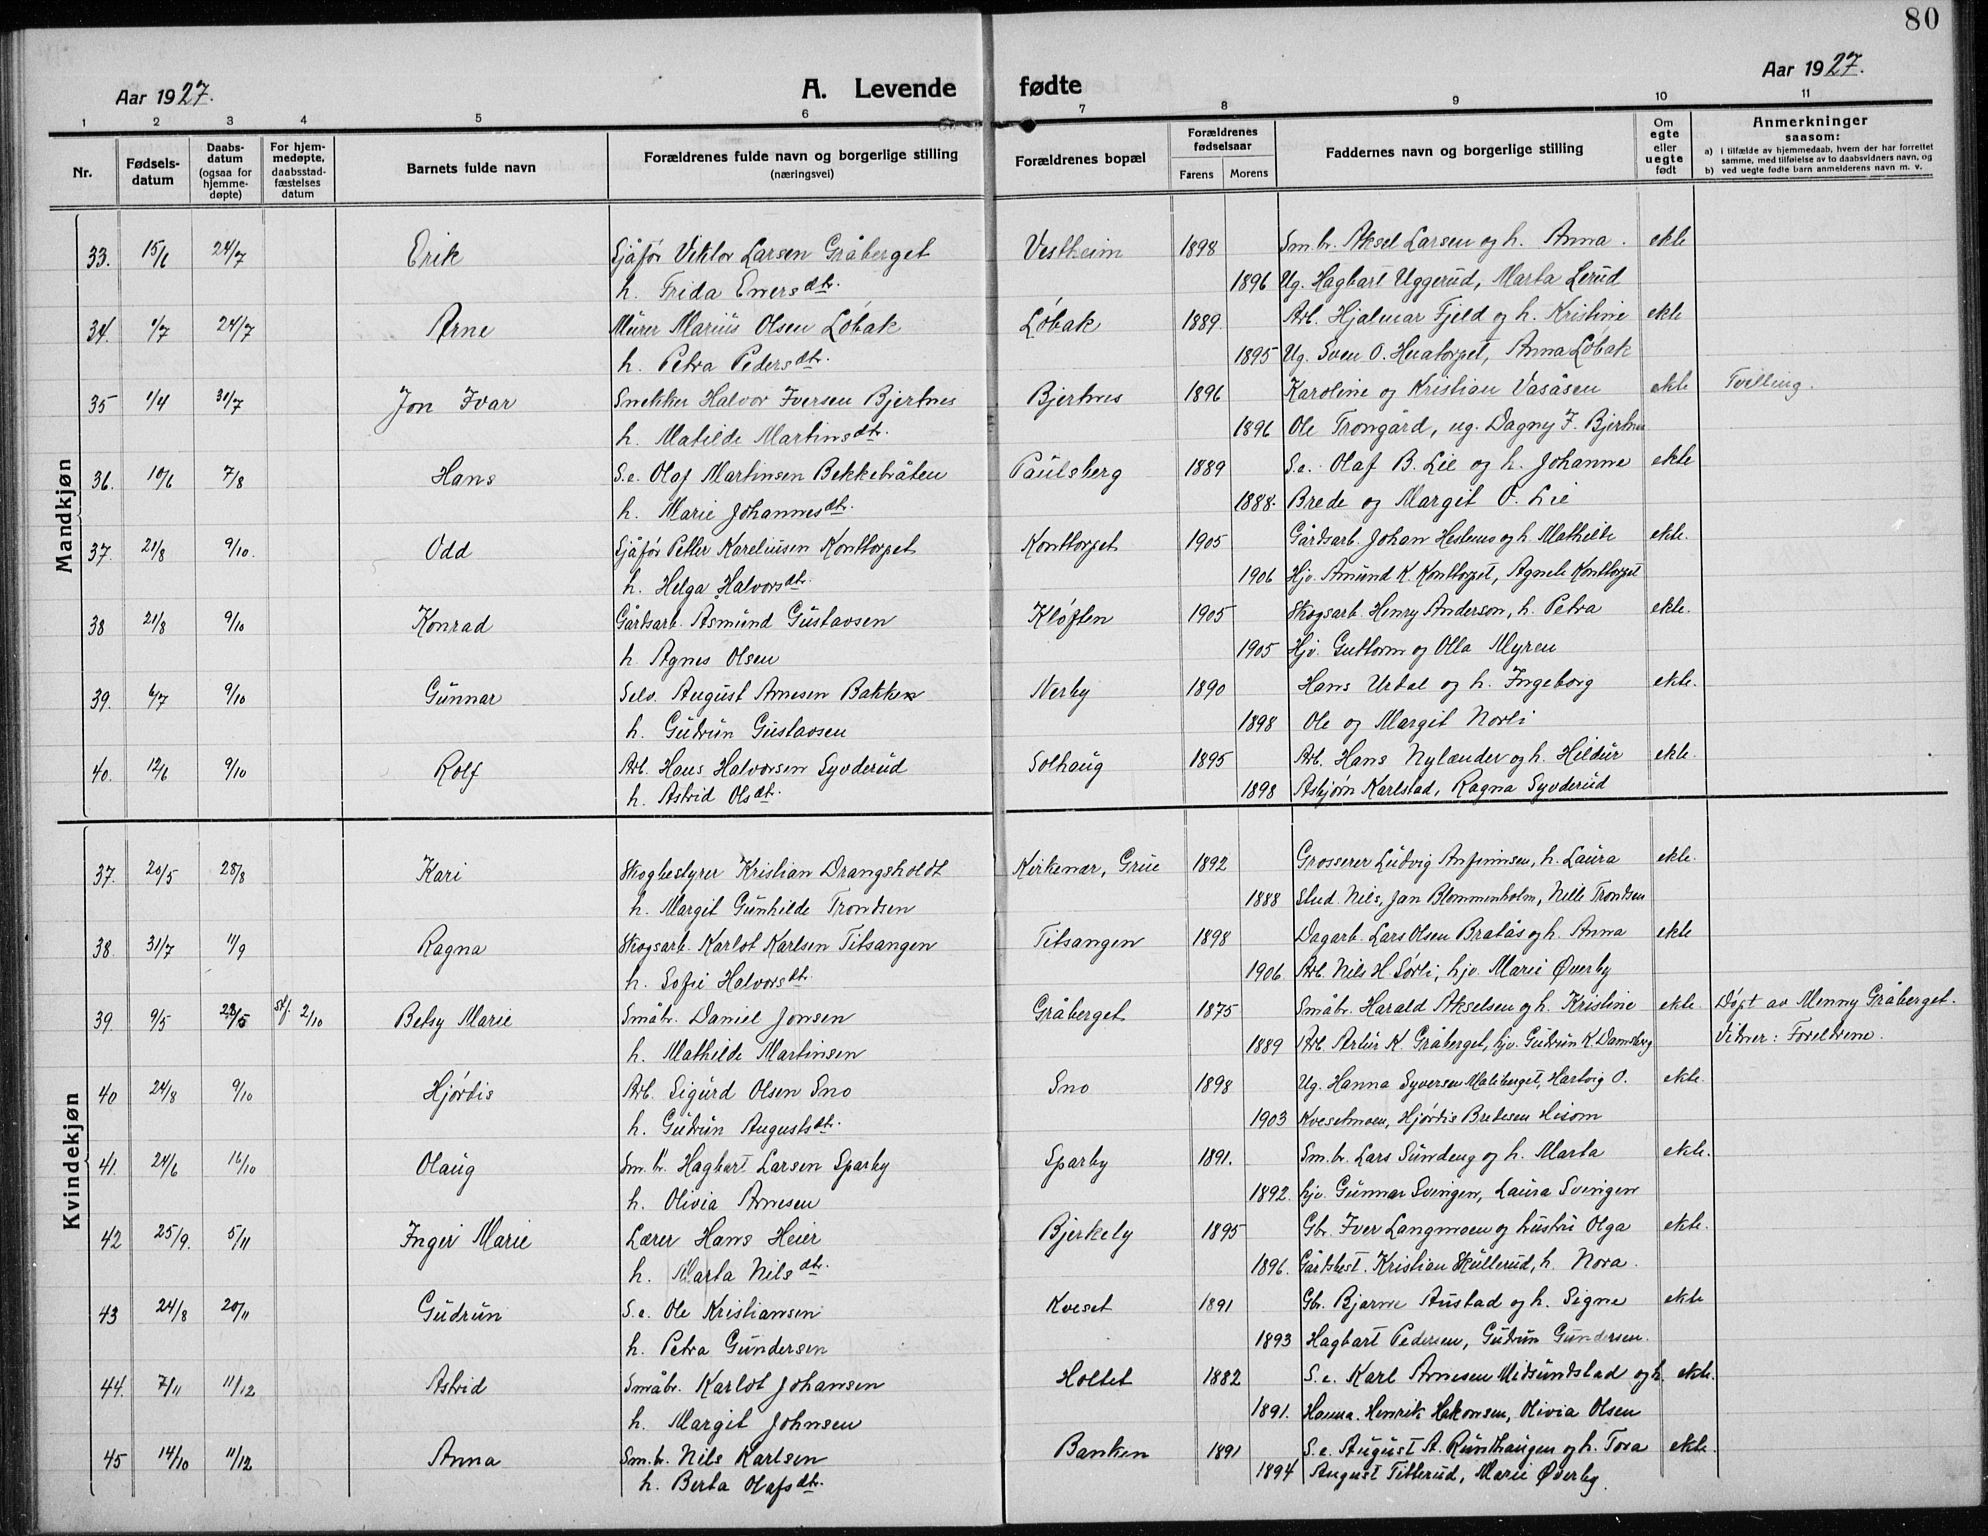 80
Aar 1927.
A. Levende fødte
Aar 1927.
1 2 3 4 5 6 7 8 9 10 11
Nr.
Fødsels-
datum
Daabs-
datum
(ogsaa for
hjemme-
døpte)
For hjem-
medøpte,
daabsstad-
fæstelses
datum
Barnets fulde navn
Forældrenes fulde navn og borgerlige stilling
(næringsvei)
Forældrenes bopæl
Forældrenes
fødselsaar
Farens Morens
Faddernes navn og borgerlige stilling
Om
egte
eller
uegte
født
Anmerkninger
saasom:
a) i tilfælde av hjemmedaab, hvem der har forrettet
samme, med tilføielse av to daabsvidners navn, og
b) ved uegte fødte barn anmelderens navn m. v.
Mandkjøn
33. 15/6 24/7 Erik Sjåfør Viktor Larsen Gråberget Vestheim 1898 Sm.br. Aksel Larsen og h. Anna. ekte
h. Frida Ewersdtr. 1896 Ug. Hagbart Uggerud, Marta Lerud
34. 1/7 24/7 Arne Murer Marius Olsen Løbak Løbak 1889. Arb. Hjalmar Fjeld og h. Kristine ekte
h. Petra Pedersdtr. 1895 Ug. Sven O. Huatorpet, Anna Løbak
35 1/4 31/7 Jon Ivar Snekker Halvor Iversen Bjertnes Bjertnes 1896 Karoline og Kristian Vasåsen ekte Tvilling.
h. Matilde Martinsdtr. 1896 Ole Trongård, ug. Dagny I. Bjertnes
36. 10/6 7/8 Hans S.e. Olaf Martinsen Bekkebråten Paulsberg 1889 S.e. Olaf B. Lie og h. Johanne ekte
h. Marie Johannesdtr. 1888. Brede og Margit O. Lie
37. 21/8 9/10. Odd Sjåfør Petter Kareliusen Konttorpet Konttorpet 1905 Gårdsarb. Johan Hesbeus og h. Mathilde ekte.
h. Helga Halvorsdtr. 1906 Hjv. Amund K. Konttorpet, Agnete Konttorpet
38 21/8 9/10 Konrad Gårdsarb. Asmund Gustavsen Kløften 1905 Skogsarb. Henry Anderson, h. Petra ekte.
h Agnes Olsen 1905 Hjv. Guttorm og Olla Myren
39. 6/7 9/10 Gunnar Selv. August Arnesen Bakken Nerby 1890 Hans Urdal og h. Ingeborg ekte.
h. Gudrun Gustavsen 1898 Ole og Margit Norli
40. 12/6 9/10 Rolf Arb. Hans Halvorsen Syvderud Solhaug 1895 Arb. Hans Nylænder og h. Hildur ekte.
h. Astrid Olsdtr. 1898 Asbjørn Karlstad, Ragna Syvderud
Kvindekjøn
37. 20/5 28/8 Kari Skogbestyrer Kristian Drangsholdt Kirkenær, Grue 1892 Grosserer Ludvig Anfinnsen, h. Laura ekte.
h. Margit Gunhilde Trondsen 1888 Stud. Nils, Jan Blommenholm, Nelle Trondsen
38. 31/7 11/9 Ragna Skogsarb. Karlot Karlsen Titsangen Titsangen 1898 Dagarb. Lars Olsen Bråtås og h. Anna ekte
h. Sofie Halvorsdtr. 1906. Arb. Nils H. Sørli, hjv. Marie Øverby
39. 9/5 28/5 stf. 2/10 Betsy Marie Småbr. Daniel Jonsen Gråberget 1875 Småbr. Harald Akselsen og h. Kristine ekte. Døpt av Menny Gråberget.
h. Mathilde Martinsen 1889 Arb. Artur K. Gråberget, hjv. Gudrun K. Damsberg Vitner: Foreldrene.
40 24/8 9/10 Hjørdis Arb. Sigurd Olsen Sno Sno 1898 Ug. Hanna Syversen Maliberget, Hartvig O. ekte.
h. Gudrun Augustsdtr. 1903 Kvesetmoen, Hjørdis Bredesen Hisom
41. 24/6 16/10 Olaug Sm.br. Hagbart Larsen Sparby Sparby 1891. Sm.br. Lars Sundeng og h. Marta ekte.
h. Olivia Arnesen 1892. hjv. Gunnar Svingen, Laura Svingen
42 25/9. 5/11 Inger Marie Lærer Hans Heier Bjerkely 1895 Gbr. Iver Langmoen og hustru Olga ekte.
h. Marta Nilsdtr. 1896. Gårdsbest. Kristian Skullerud, h. Nora.
43 24/8 20/11 Gudrun S.e. Ole Kristiansen Kveset 1891 Gbr. Bjarne Austad og h. Signe ekte
h. Petra Gundersen 1893 Hagbart Pedersen, Gudrun Gundersen.
44. 7/11 11/12 Astrid Småbr. Karlot Johansen Holtet 1882 S.e. Karl Arnesen Midsundstad og h. ekte.
h. Margit Johnsen 1891. Hanna. Henrik Hakonsen, Olivia Olsen
45 14/10 11/12 Anna Sm.br. Nils Karlsen Banken 1891 S.e. August A. Rundhaugen og h. Tora ekte.
h. Berta Olafsdtr. 1894 August Titterud, Marie Øverby.